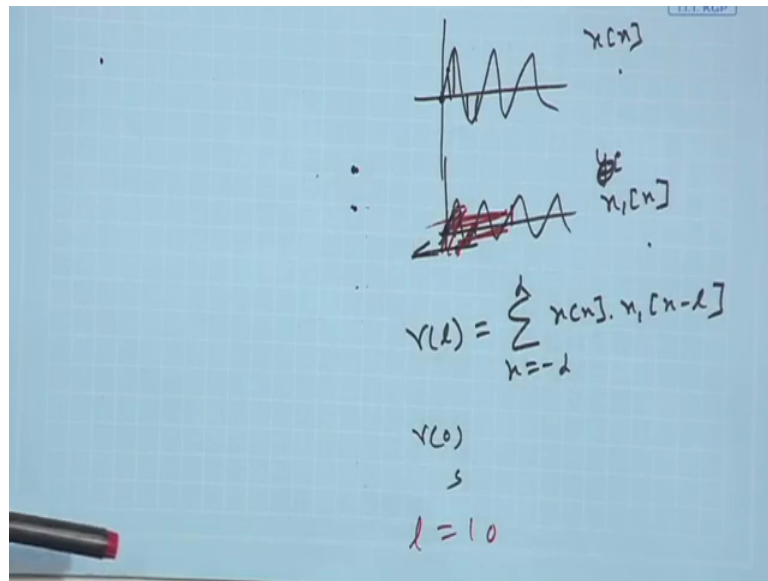 I.I.T. KGP
x[n]
x₁[n]
r(l) = ∑ x[n]. x₁[n-l]
n=-∞
r(0)
s
l = 10